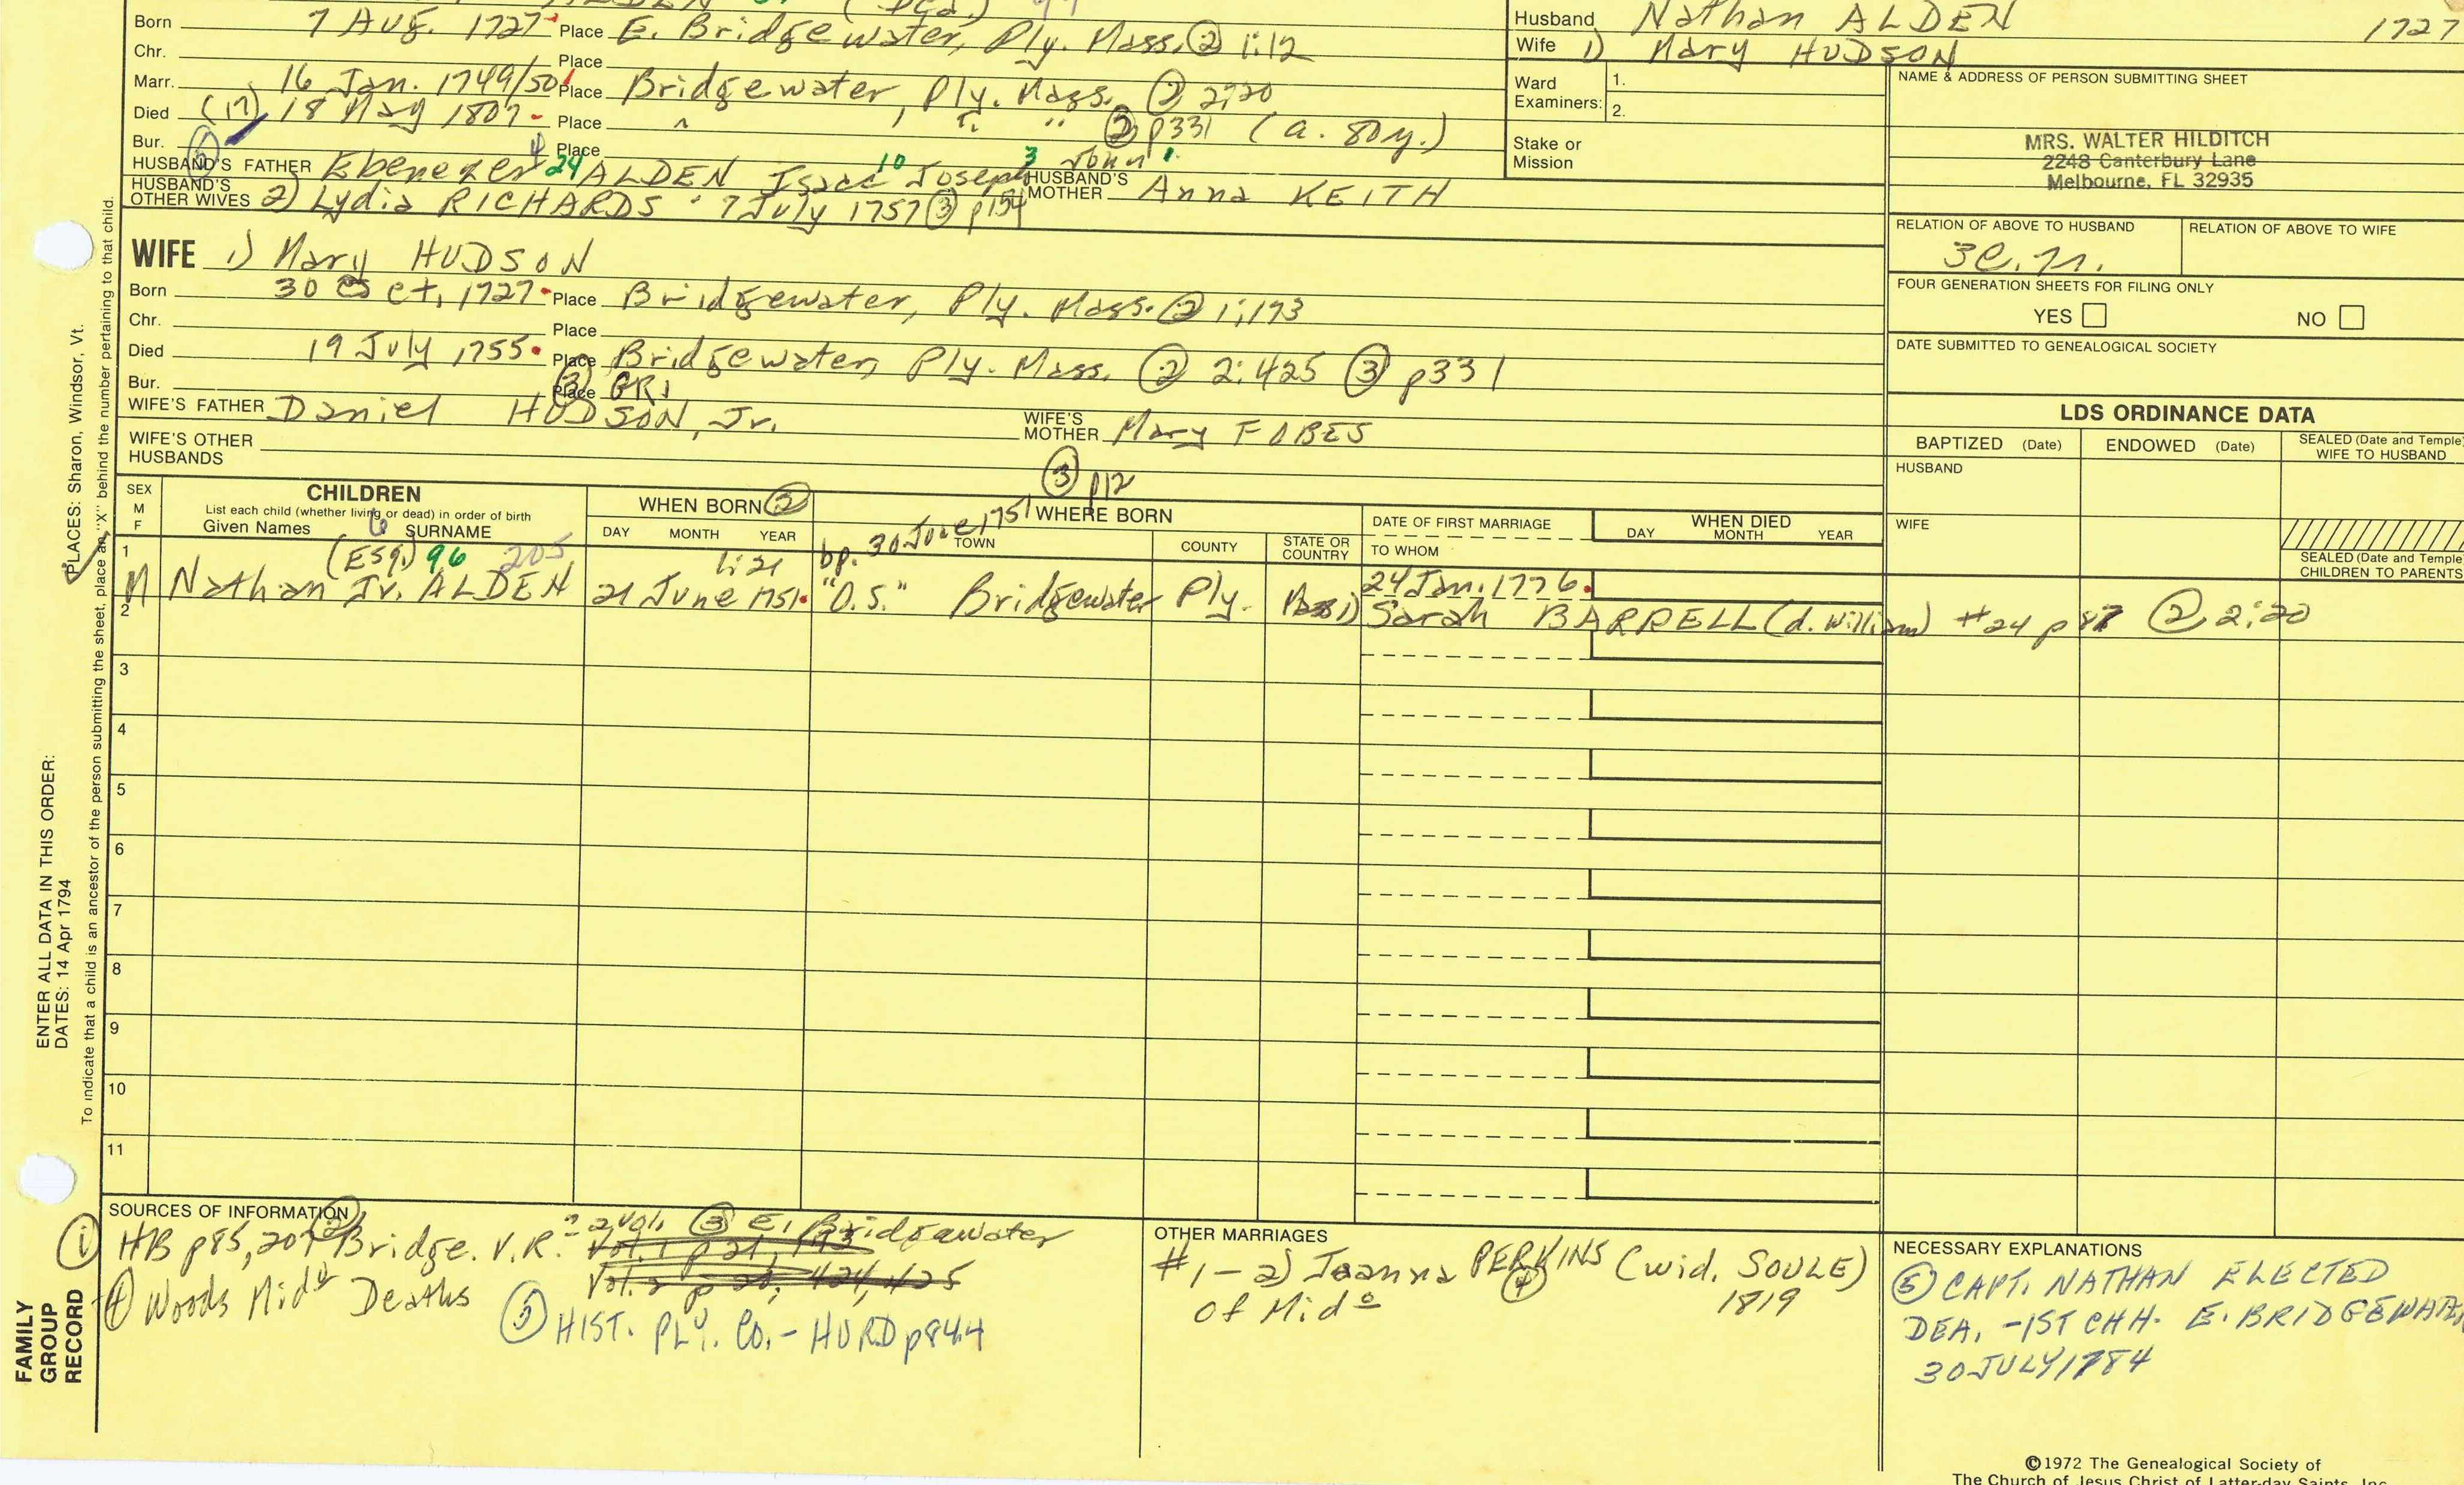 Born 7 Aug. 1727 Place E. Bridgewater, Ply. Mass. ② 1:12
Chr. Place
Marr. 16 Jan. 1749/50 Place Bridgewater, Ply. Mass. ② 2:20
Died (17) 18 May 1807 Place " " " ② p331 (a. 80y.)
Bur. Place
HUSBAND'S FATHER Ebenezer 24 ALDEN Isaac 10 Joseph 3 John 1.
HUSBAND'S MOTHER Anna KEITH
HUSBAND'S OTHER WIVES 2) Lydia RICHARDS 7 July 1757 ③ p154
Husband Nathan ALDEN 1727
Wife 1) Mary HUDSON
Ward Examiners: 1.
2.
Stake or Mission
NAME & ADDRESS OF PERSON SUBMITTING SHEET
MRS. WALTER HILDITCH
2248 Canterbury Lane
Melbourne, FL 32935
RELATION OF ABOVE TO HUSBAND
RELATION OF ABOVE TO WIFE
FOUR GENERATION SHEETS FOR FILING ONLY
YES NO
DATE SUBMITTED TO GENEALOGICAL SOCIETY
WIFE 1) Mary HUDSON
Born 30 Oct, 1727 Place Bridgewater, Ply. Mass. ② 1:173
Chr. Place
Died 19 July 1755 Place Bridgewater, Ply. Mass. ② 2:425 ③ p331
Bur. Place ② GR1
WIFE'S FATHER Daniel HUDSON, Jr.
WIFE'S MOTHER Mary FOBES
WIFE'S OTHER HUSBANDS
LDS ORDINANCE DATA
BAPTIZED (Date) ENDOWED (Date) SEALED (Date and Temple) WIFE TO HUSBAND
HUSBAND
WIFE
SEALED (Date and Temple) CHILDREN TO PARENTS
③ p12
SEX M F
CHILDREN
List each child (whether living or dead) in order of birth
Given Names SURNAME
WHEN BORN ②
DAY MONTH YEAR
WHERE BORN
TOWN COUNTY STATE OR COUNTRY
DATE OF FIRST MARRIAGE
TO WHOM
WHEN DIED
DAY MONTH YEAR
bp. 30 June 1751
(Esq.) 96 205 1:21
1 M Nathan Jr. ALDEN 21 June 1751 "O.S." Bridgewater Ply. 24 Jan. 1776
1) Sarah BARRELL (d. William) #24 p 87 ② 2:20
2
3
4
5
6
7
8
9
10
11
SOURCES OF INFORMATION
① HB p85, 207 ② Bridge. V.R. 2 vol. ③ E. Bridgewater
④ Woods Mid⁰ Deaths
⑤ HIST. PLY. CO. - HURD p844
OTHER MARRIAGES
#1 - 2) Joanna PERKINS ④ (wid. SOULE)
of Mid⁰ 1819
NECESSARY EXPLANATIONS
⑤ CAPT. NATHAN ELECTED
DEA. - 1ST CHH. E. BRIDGEWATER
30 JULY 1784
©1972 The Genealogical Society of
The Church of Jesus Christ of Latter-day Saints, Inc.
PLACES: Sharon, Windsor, Vt.
ENTER ALL DATA IN THIS ORDER:
DATES: 14 Apr 1794
To indicate that a child is an ancestor of the person submitting the sheet, place an "X" behind the number pertaining to that child.
FAMILY
GROUP
RECORD